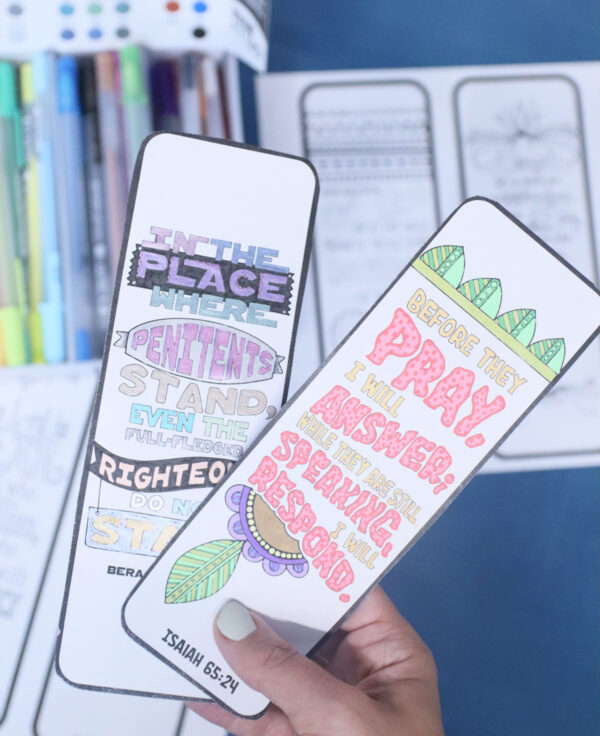 IN THE
PLACE
WHERE
PENITENTS
STAND,
EVEN THE
FULL-FLEDGED
RIGHTEOU
DO NO
STA
BERA
BEFORE THEY
PRAY,
I WILL
ANSWER;
WHILE THEY ARE STILL
SPEAKING,
I WILL
RESPOND.
ISAIAH 65:24